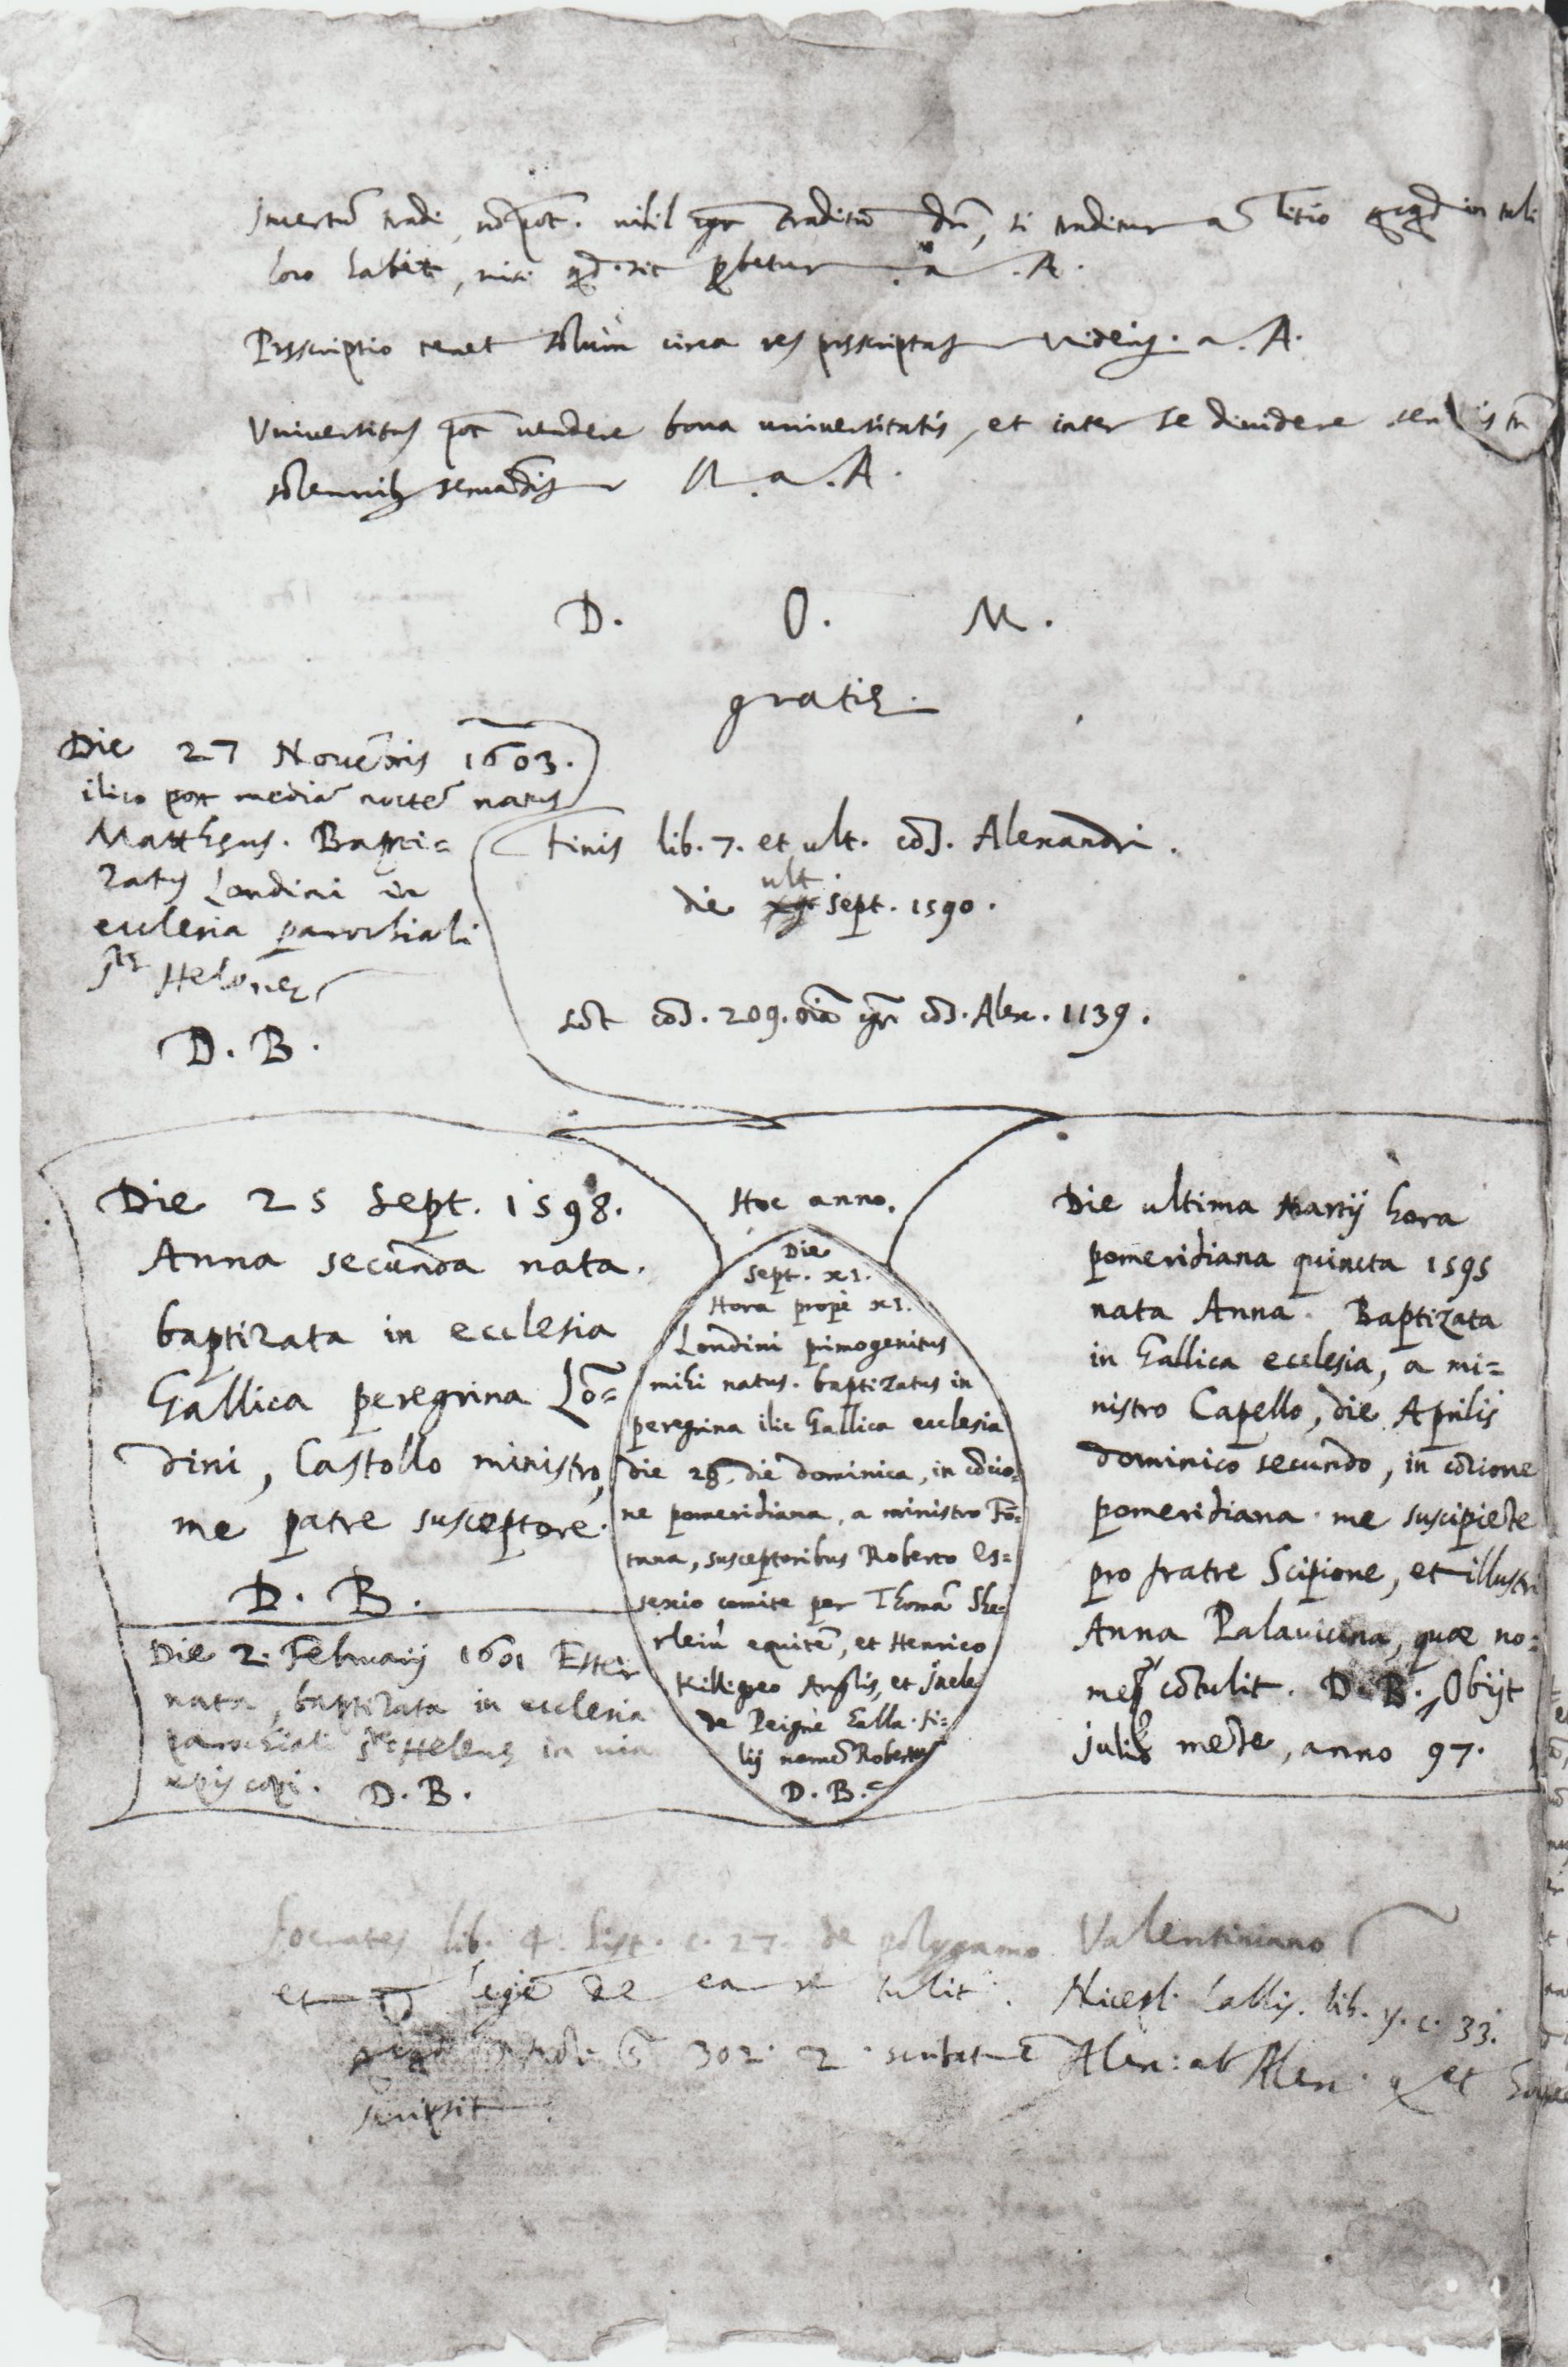 Incertũ tradi, nõ põt. nihil igr̃ traditũ dr̃, si traditur a Titio qcqd in tali
loco habet, nisi qd sit ꝓbetur. a. A.
Pręscriptio tenet solùm circa res pręscriptas a. A.
Vniuersitas põt uendere bona uniuersitatis, et inter se diuidere
solemnib seruãdis a. A.
D. O. M.
gratię.
Die 27 Nouẽbris 1603.
ilico post mediã noctẽ natus
Matthęus. Bapti=
zatus Londini in
ecclesia parochiali
stę Helenę
D. B.
Finis lib. 7. et ult. cõs. Alexandri.
ult.
die sept. 1590.
sũt cõs. 209. oĩa igr̃ cõs. Alex. 1139.
Die 25 Sept. 1598.
Anna secunda nata.
baptizata in ecclesia
Gallica peregrina Lõ=
dini, Castollo ministro,
me patre susceptore.
D. B.
Die 2. Februarij 1601 Ester
nata, baptizata in ecclesia
parochiali stę Helenę in uia
episcopi. D. B.
Hoc anno.
Die
Sept. xi.
Hora propè xi.
Londini primogenitus
mihi natus. baptizatus in
peregrina ilic Gallica ecclesia
die 28. die dominica, in cõcio=
ne pomeridiana, a ministro Fõ=
tana, susceptoribus Roberto Es=
sexio comite per Thomã She
rleiũ equitẽ, et Henrico
Killigreo Anglis, et Jaele
de Peigne Galla. fi=
lij nomẽ Robertus
D. B.
Die ultima Martij hora
pomeridiana quincta 1595
nata Anna. Baptizata
in Gallica ecclesia, a mi=
nistro Capello, die Aprilis
dominico secundo, in cõcione
pomeridiana. me suscipiẽte
pro fratre Scipione, et illustri
Anna Palauicina, quæ no=
mẽ cõtulit. D. B. Obijt
julio mẽse, anno 97.
Socrates lib. 4. hist. c. 27. de polygamo Valentiniano
et legẽ de ea re tulit. Niceph. Callis. lib. c. 33.
302. 2. Alex: ab Alex. et
scripsit